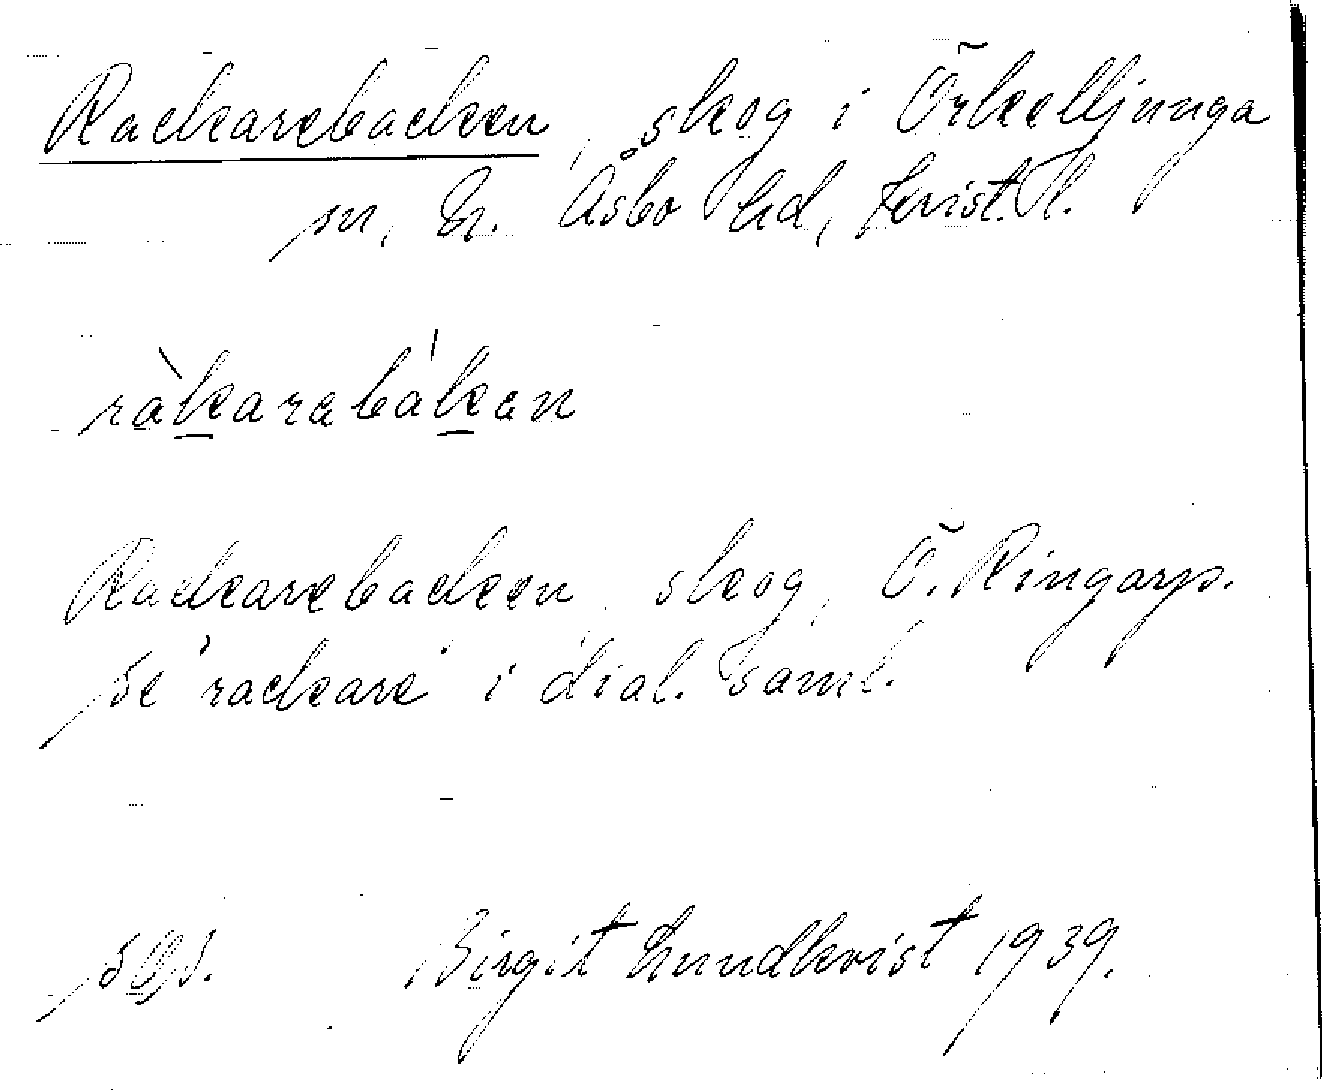 Rackarebacken, skog i Örkelljunga
sn, N. Åsbo hd, Krist. l.
ràkarabákan
Rackarebacken, skog, Ö. Ringarp.
Se 'rackare' i dial. saml.
Birgit Lundkvist 1939.